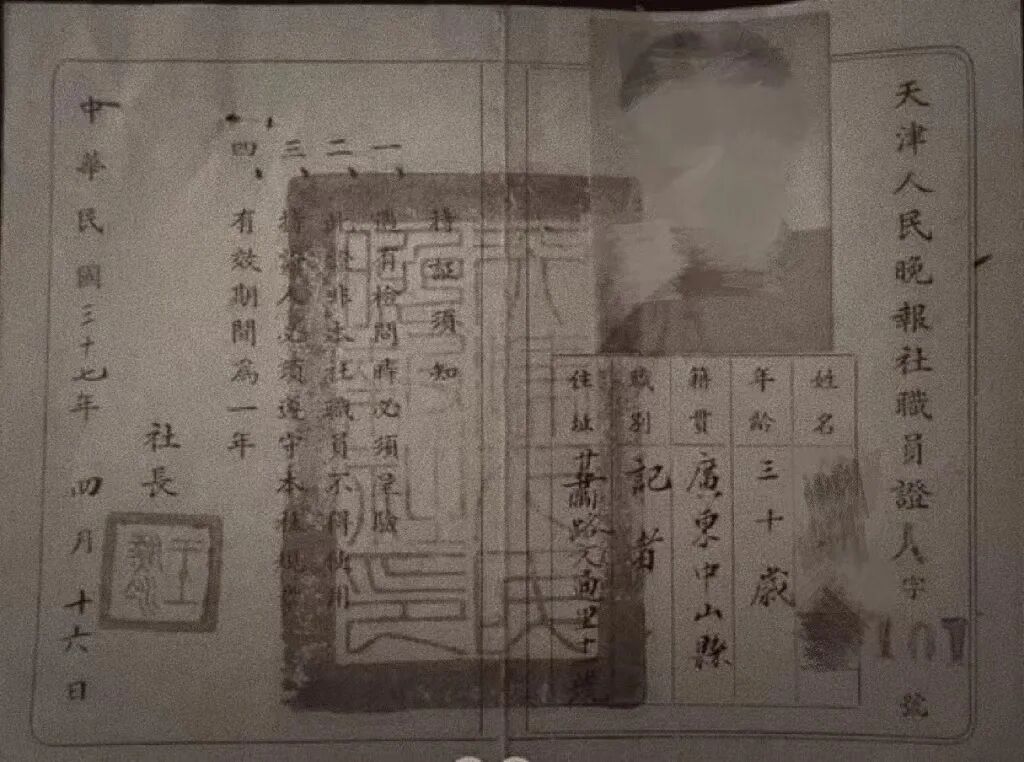 天津人民晚報社職員證人字107號
姓名
年齡 三十歲
籍貫 廣東中山縣
職別 記者
住址 甘肅路天面里十
持証須知
一、遇有檢問時必須呈驗
二、此證非本社職員不得使用
三、持證人必須遵守本社規
四、有效期間為一年
社長
中華民國三十七年四月十六日